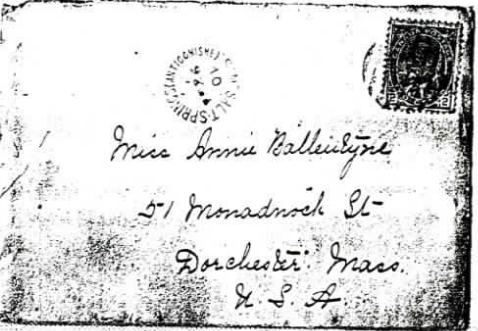 SALT SPRINGS (ANTIGONISHE) N.S.
10
Miss Annie Ballentyne
51 Monadnock St
Dorchester. Mass.
U. S. A